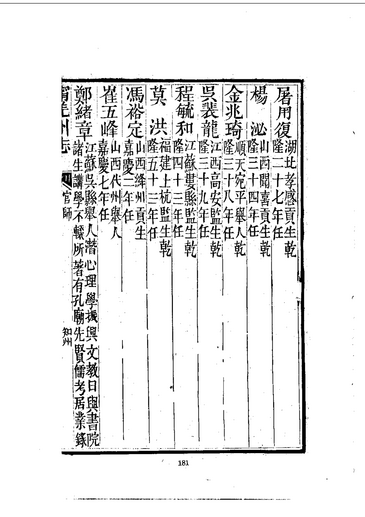 屠用復 湖北孝感貢生乾
隆二十七年任
楊泌 山西聞喜貢生乾
隆三十四年任
金兆琦 順天宛平舉人乾
隆三十八年任
吳裴龍 江西高安監生乾
隆三十九年任
程毓和 江蘇婁縣監生乾
隆四十三年任
莫洪 福建上杭監生乾
隆五十三年任
馮裕定 山西絳州貢生
嘉慶二年任
崔五峰 山西代州舉人
嘉慶七年任
鄭緒章 江蘇吳縣舉人潛心理學振興文教日與書院
諸生講學不輟所著有孔廟先賢儒考居業錄
甯羌州志 官師 知州
181